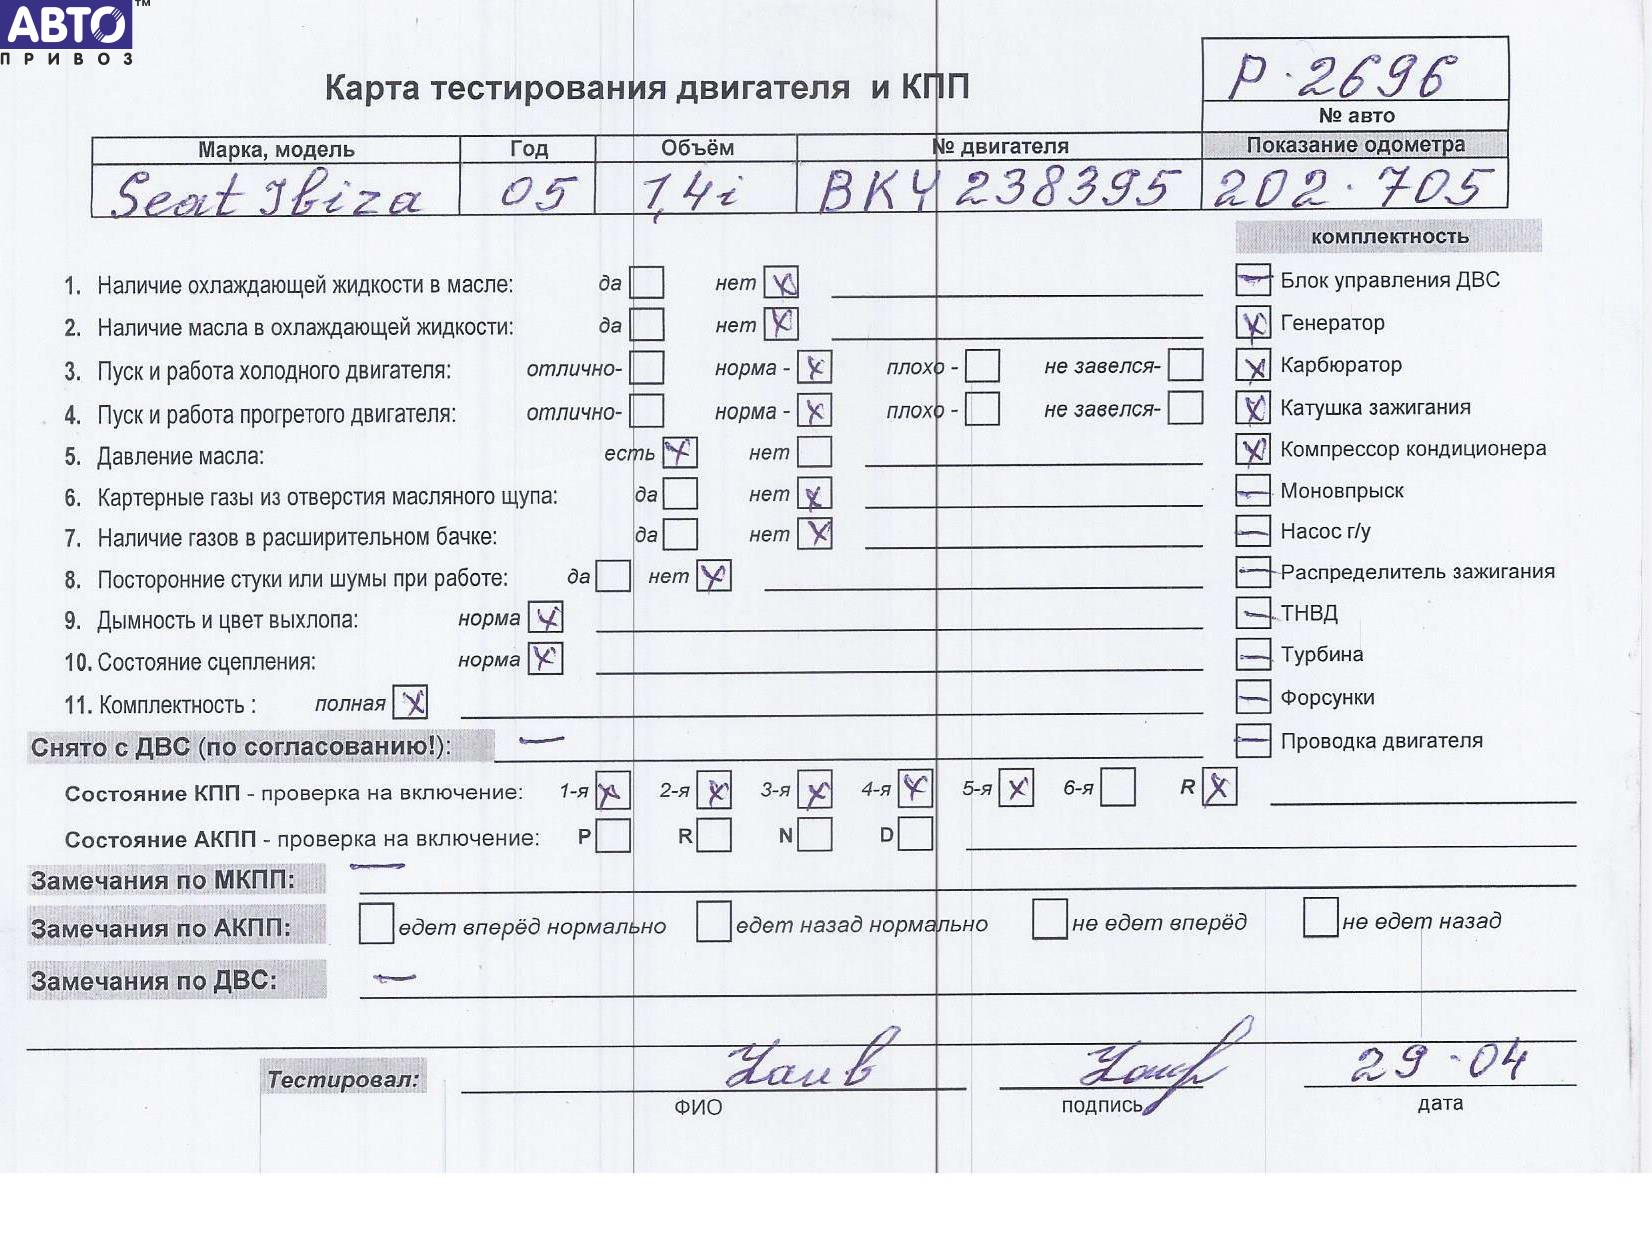 АВТО™
ПРИВОЗ
Карта тестирования двигателя и КПП
Р·2696
№ авто
Марка, модель Год Объём № двигателя Показание одометра
Seat Ibiza 05 1,4i BKY 238395 202·705
комплектность
1. Наличие охлаждающей жидкости в масле: да нет X
— Блок управления ДВС
2. Наличие масла в охлаждающей жидкости: да нет X
X Генератор
3. Пуск и работа холодного двигателя: отлично- норма - X плохо - не завелся-
X Карбюратор
4. Пуск и работа прогретого двигателя: отлично- норма - X плохо - не завелся-
X Катушка зажигания
5. Давление масла: есть X нет
X Компрессор кондиционера
6. Картерные газы из отверстия масляного щупа: да нет X
— Моновпрыск
7. Наличие газов в расширительном бачке: да нет X
— Насос г/у
8. Посторонние стуки или шумы при работе: да нет X
— Распределитель зажигания
9. Дымность и цвет выхлопа: норма X
— ТНВД
10. Состояние сцепления: норма X
— Турбина
11. Комплектность : полная X
— Форсунки
Снято с ДВС (по согласованию!): —
— Проводка двигателя
Состояние КПП - проверка на включение: 1-я X 2-я X 3-я X 4-я X 5-я X 6-я R X
Состояние АКПП - проверка на включение: P R N D
Замечания по МКПП: —
Замечания по АКПП: едет вперёд нормально едет назад нормально не едет вперёд не едет назад
Замечания по ДВС: —
Тестировал: 29-04
ФИО подпись дата